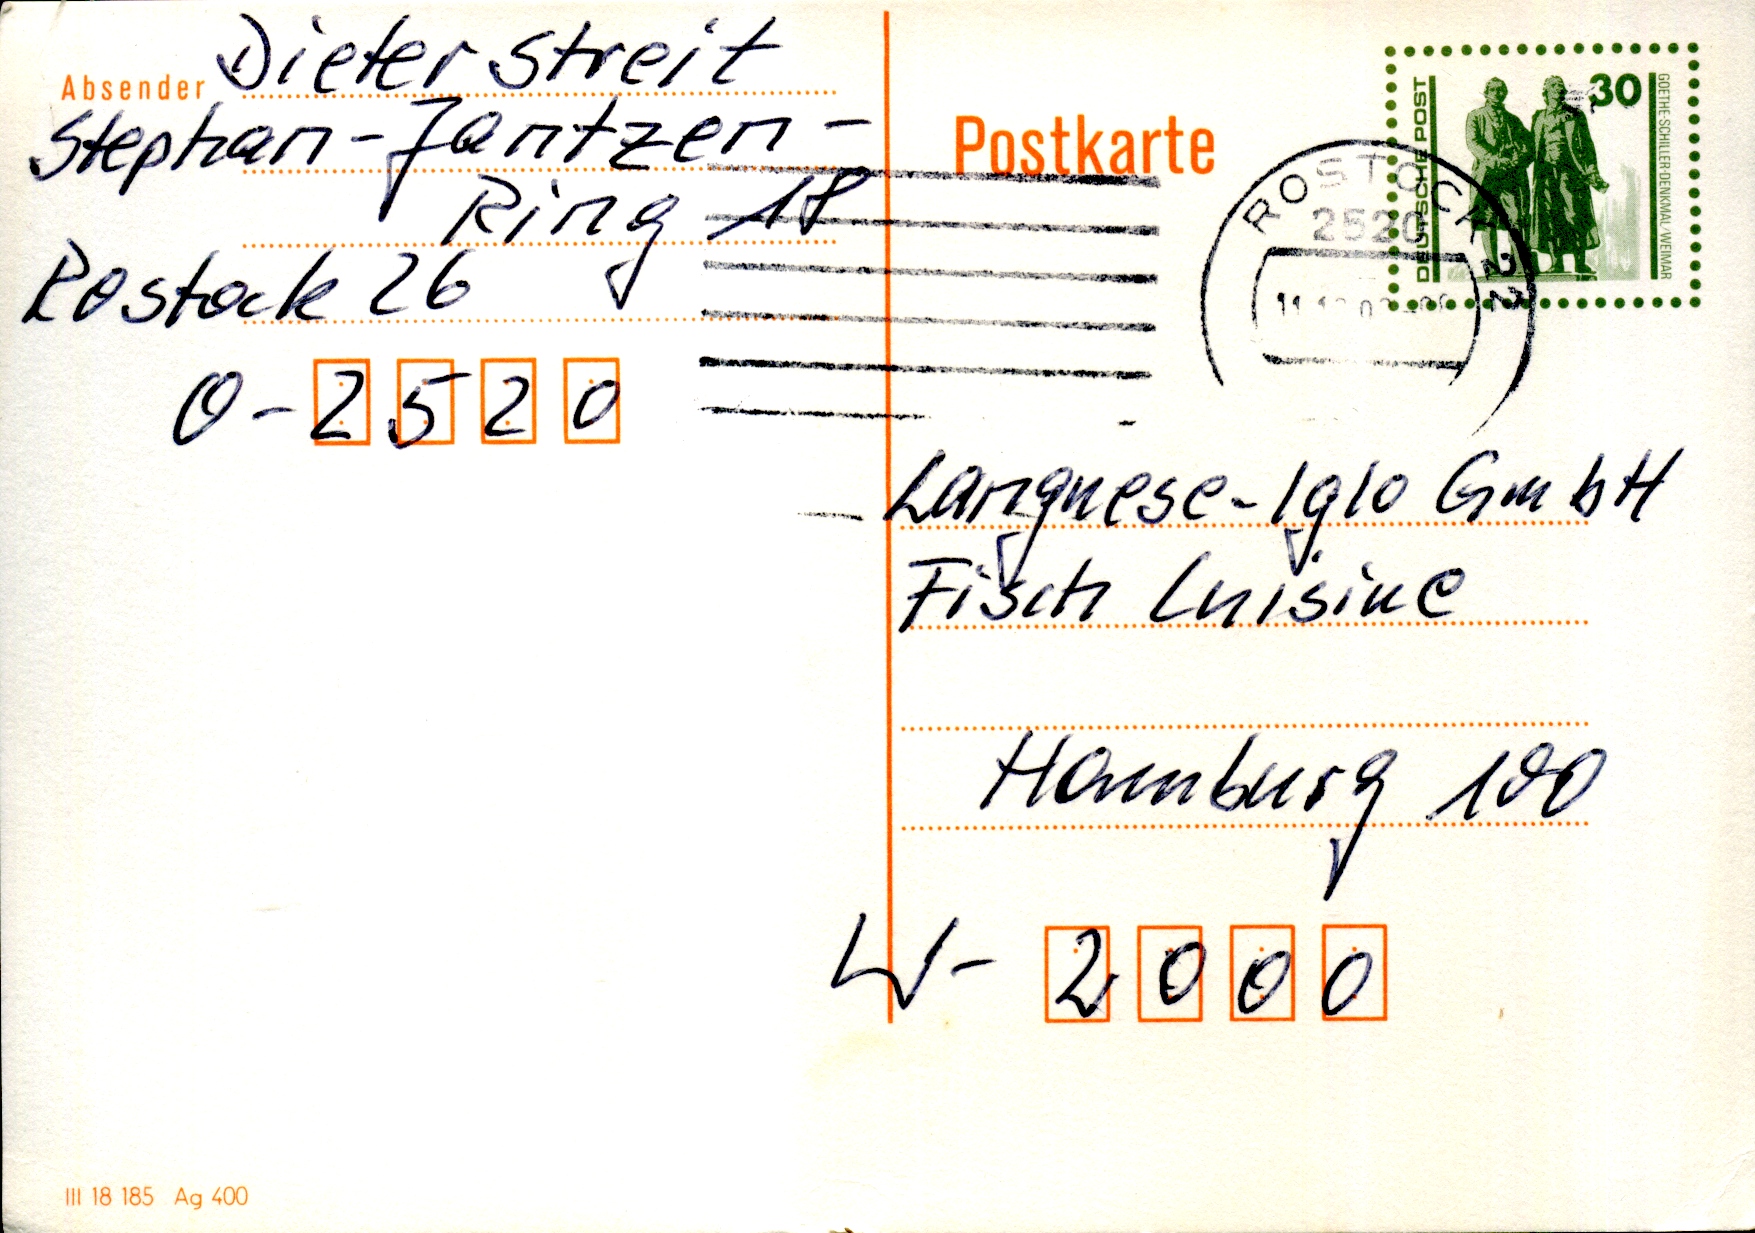 Absender Dieter Streit
Stephan-Jantzen-
Ring 18
Rostock 26
O-2520
Postkarte
DEUTSCHE POST
30
GOETHE-SCHILLER-DENKMAL/WEIMAR
ROSTOCK 22
2520
Langnese-Iglo GmbH
Fisch Cuisine
Hamburg 100
W-2000
III 18 185 Ag 400